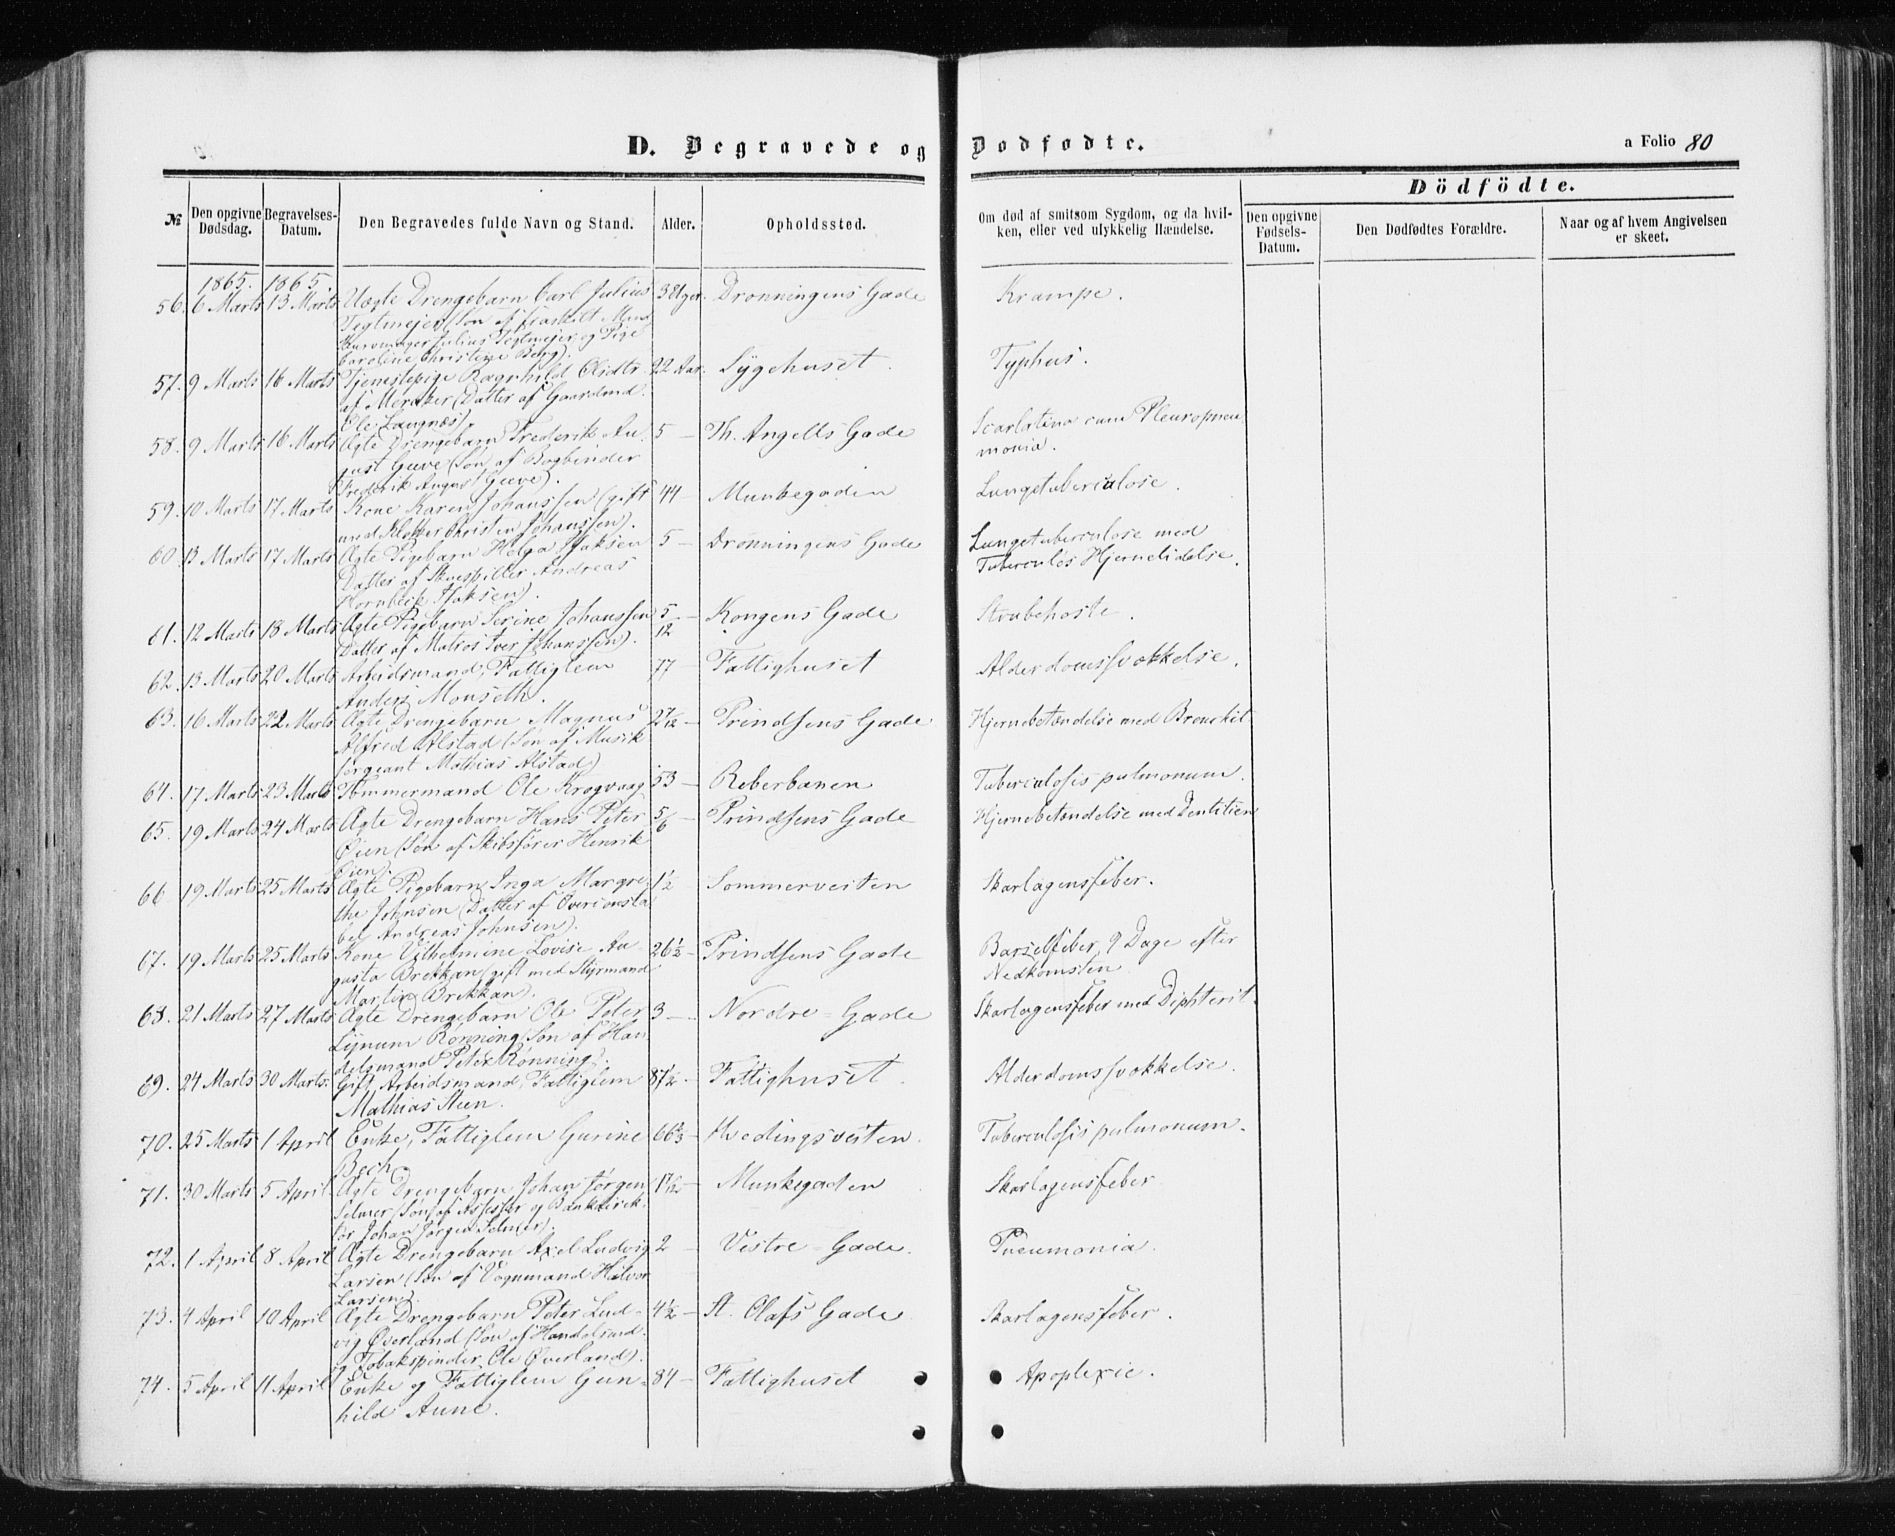 D. Begravede og Dodfodte.
a Folio 80
Dödfödte.
№
Den opgivne Dødsdag.
Begravelses-Datum.
Den Begravedes fulde Navn og Stand.
Alder.
Opholdssted.
Om død af smitsom Sygdom, og da hvilken, eller ved ulykkelig Hændelse.
Den opgivne Fødsels-Datum.
Den Dødfødtes Forældre.
Naar og af hvem Angivelsen er skeet.
1865. 1865.
56. 6 Marts 13 Marts Uægte Drengebarn Carl Julius 3 Uger. Dronningens Gade Krampe.
Tegtmejer (Søn af fraskilt Mand
Julius Tegtmejer og Pige
Caroline Christine Berg).
57. 9 Marts 16 Marts Tjenestepige Ragnhild Olsdtr 22 Aar. Sygehuset. Typhus.
af Meraker (Datter af Gaardmd.
Ole Langnæs).
58. 9 Marts 16 Marts Ægte Drengebarn Frederik Au- 5 — Th. Angells Gade Scarlatina cum Pleuropneu
gust Greve (Søn af Bogbinder monia.
Frederik August Greve).
59. 10 Marts 17 Marts Kone Karen Johanssen (gift 44 — Munkegaden Lungetuberculose.
med Christen Johanssen).
60. 13 Marts 17 Marts Ægte Pigebarn Helga Isaksen 5 — Dronningens Gade Lungetuberculose med
Datter af Skuespiller Andreas Tuberculös Hjernelidelse.
Hornbeck Isaksen).
61. 12 Marts 18 Marts Ægte Pigebarn Serine Johanssen 5/12 — Kongens Gade Strubehoste.
Datter af Matros Iver Johanssen).
62. 13 Marts 20 Marts Arbeidsmand, Fattiglem 77 — Fattighuset Alderdomssvækkelse.
Anders Monseth.
63. 16 Marts 22 Marts Ægte Drengebarn Magnus 2 7/12 — Prindsens Gade Hjernebetændelse med Bronkit.
Alfred Alstad (Søn af Musik
sergeant Mathias Alstad)
64. 17 Marts 23 Marts Tømmermand Ole Krogvaag 53 — Reberbanen Tuberculosis pulmonum.
65. 19 Marts 24 Marts Ægte Drengebarn Hans Peter 5/6 — Prindsens Gade Hjernebetændelse med Dentitien
Øien (Søn af Skibsfører Henrik
Øien).
66 19 Marts 25 Marts Ægte Pigebarn Inga Margre- 1½ Sommervesten Skarlagensfeber.
the Johnsen (Datter af Overconsta
bel Andreas Johnsen).
67. 19 Marts 25 Marts Kone Vilhelmine Lovise Au- 26½ — Prindsens Gade Barselfeber, 9 Dage efter
gusta Brekkan (gift med Styrmand Nedkomsten
Martin Brekkan).
68. 21 Marts 27 Marts Ægte Drengebarn Ole Peter 3 — Nordre-Gade Skarlagensfeber med Diphterit.
Lynum Rønning (Søn af Han
delsmand Peter Rønning).
69. 24 Marts 30 Marts. Gift Arbeidsmand, Fattiglem 87½ Fattighuset. Alderdomssvækkelse.
Mathias Steen.
70. 25 Marts 1 April Enke, Fattiglem Gurine 66⅔ — Hvedingsveiten. Tuberculosis pulmonum.
Bech
71. 30 Marts 5 April Ægte Drengebarn Johan Jørgen — Munkegaden Skarlagensfeber
Selmer (Søn af Assessor og Bankdirek-
tør Johan Jørgen Selmer).
72. 1 April 8 April Ægte Drengebarn Axel Ludvig 2 — Vestre-Gade. Pneumonia.
Larsen (Søn af Vognmand Halvor
Larsen).
73. 4 April 10 April Ægte Drengebarn Peter Lud- 4½ — St. Olafs Gade Skarlagensfeber.
vig Øverland (Søn af Handelsmd.
og Tobakspinder Ole Øverland).
74. 5 April 11 April Enke og Fattiglem Gun- 84 — Fattighuset Apoplexie.
hild Aune.